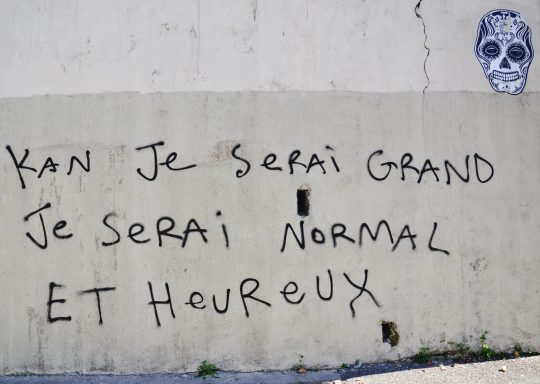 KAN Je SeRAi GRAND
Je SeRAi NORMAL
ET HeUReUX